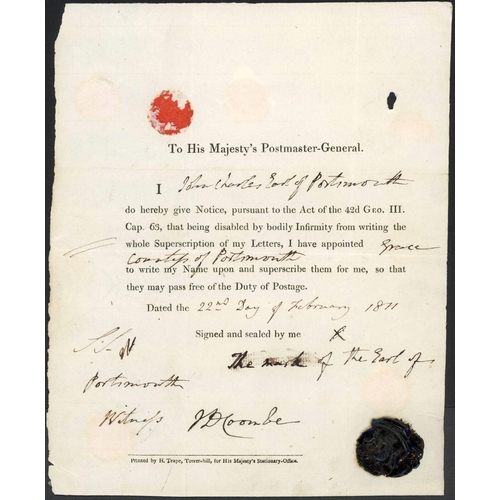 To His Majesty's Postmaster-General.
I John Charles Earl of Portsmouth
do hereby give Notice, pursuant to the Act of the 42d GEO. III.
Cap. 63, that being disabled by bodily Infirmity from writing the
whole Superscription of my Letters, I have appointed Grace
Countess of Portsmouth
to write my Name upon and superscribe them for me, so that
they may pass free of the Duty of Postage.
Dated the 22nd Day of February 1811
Signed and sealed by me X
The mark of the Earl of
Portsmouth
Witness J D Coombe
Printed by H. Teape, Tower-hill, for His Majesty's Stationary-Office.